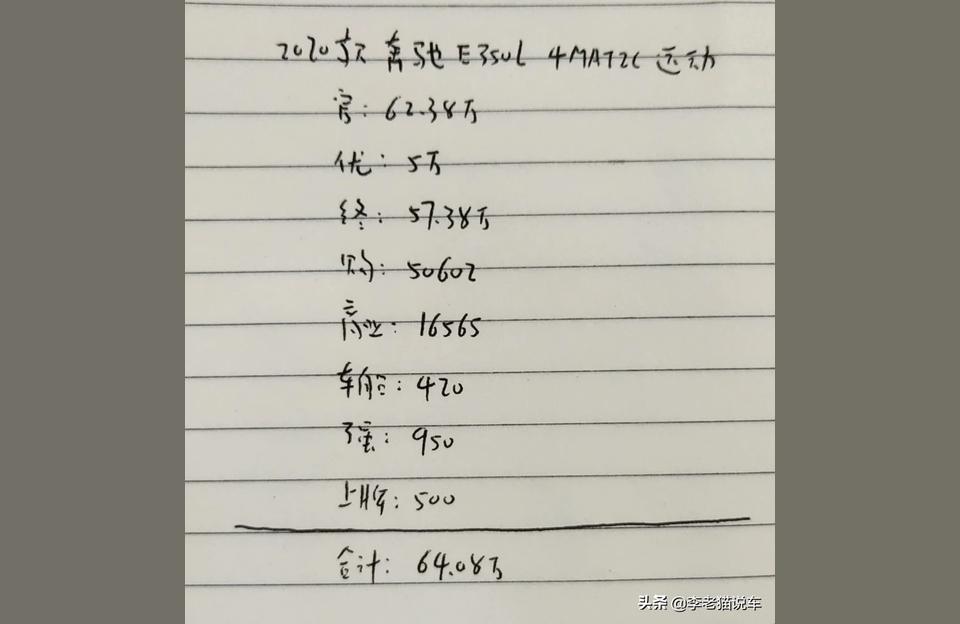 2020款 奔驰E350L 4MATIC 运动
官: 62.38万
优: 5万
终: 57.38万
购: 50602
商业: 16565
车船: 420
强: 950
上牌: 500
合计: 64.08万
头条 @李老猫说车